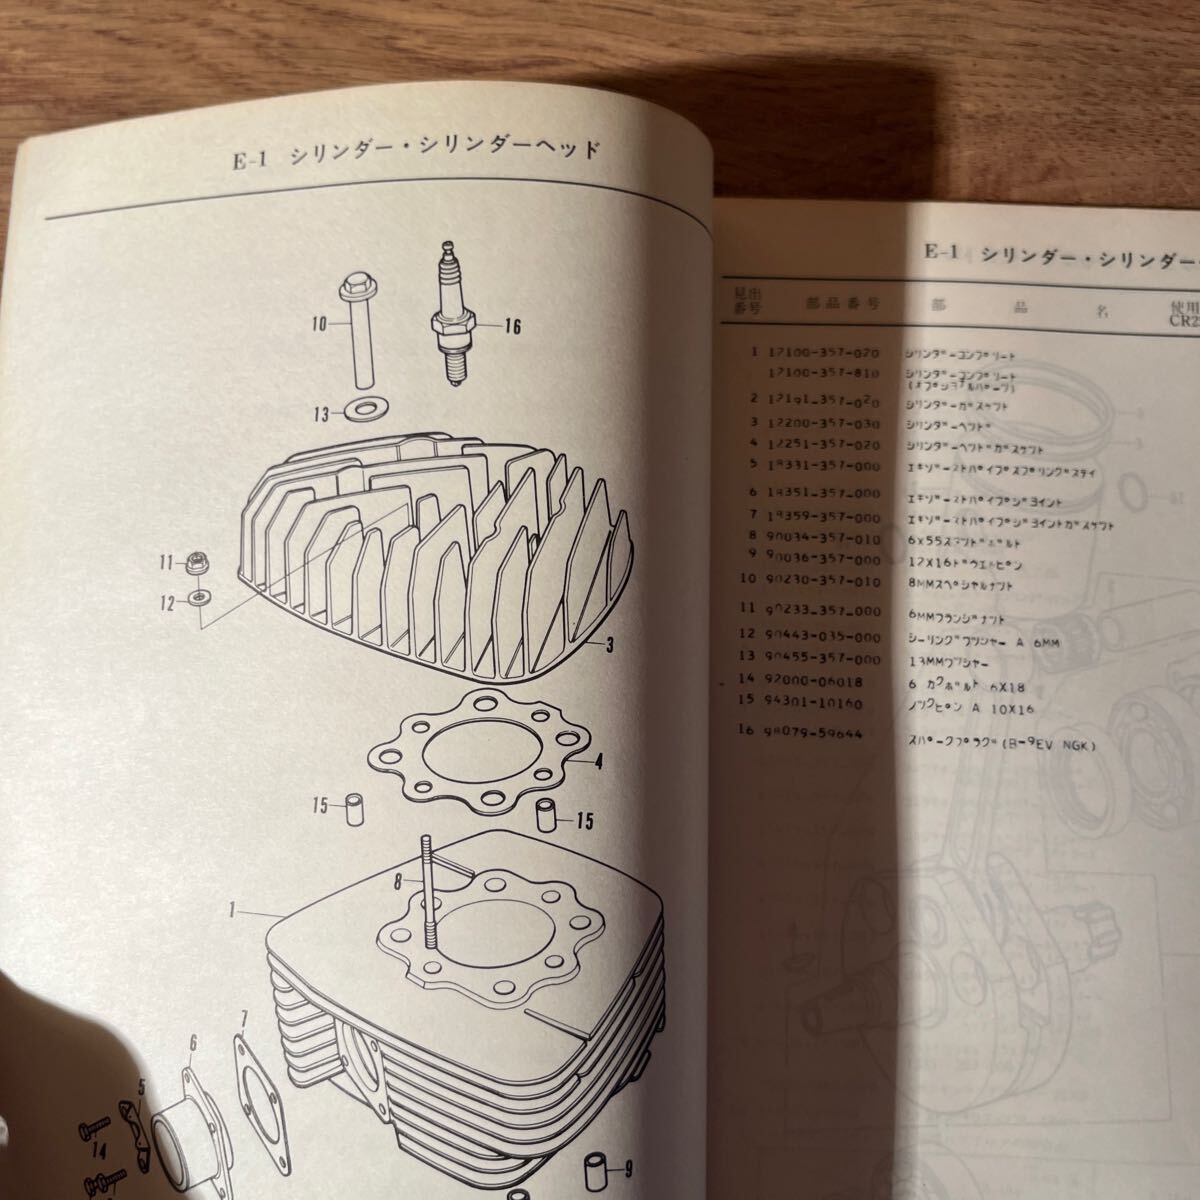 E-1 シリンダー・シリンダーヘッド
10
16
13
11
12
3
4
15
15
8
1
7
6
5
14
9
E-1 シリンダー・シリンダー
見出番号 部品番号 部品名 使用
1 12100-357-020 シリンダーコンプリート
12100-357-810 シリンダーコンプリート
(オプショナルパーツ)
2 12191-357-020 シリンダーガスケツト
3 12200-357-030 シリンダーヘツド
4 12251-357-020 シリンダーヘツドガスケツト
5 18331-357-000 エキゾーストパイプスプリングステイ
6 18351-357-000 エキゾーストパイプジヨイント
7 18359-357-000 エキゾーストパイプジヨイントガスケツト
8 90034-357-010 6x55スタツドボルト
9 90036-357-000 12X16ドウエルピン
10 90230-357-010 8MMスペシヤルナツト
11 90233-357-000 6MMフランジナツト
12 90443-035-000 シーリングワツシヤー A 6MM
13 90455-357-000 13MMワツシヤー
14 92000-06018 6 カクボルト 6X18
15 94301-10160 ノツクピン A 10X16
16 98079-59644 スパークプラグ(B-9EV NGK)